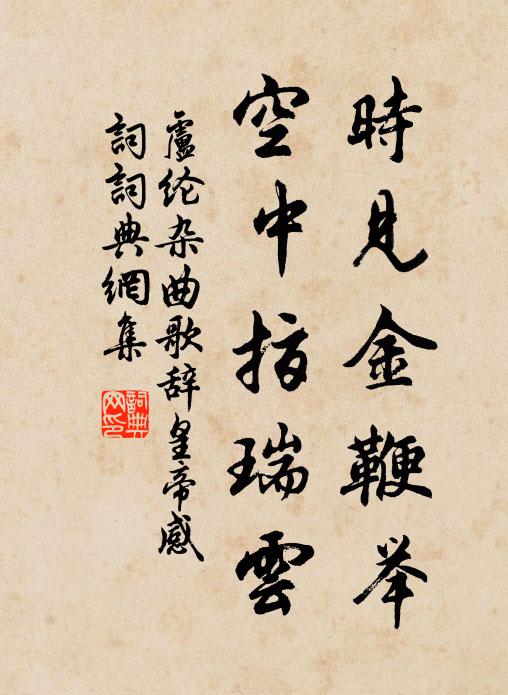 時見金鞭举
空中指瑞雲
盧纶杂曲歌辞皇帝感
詞詞典網集
詞典网印